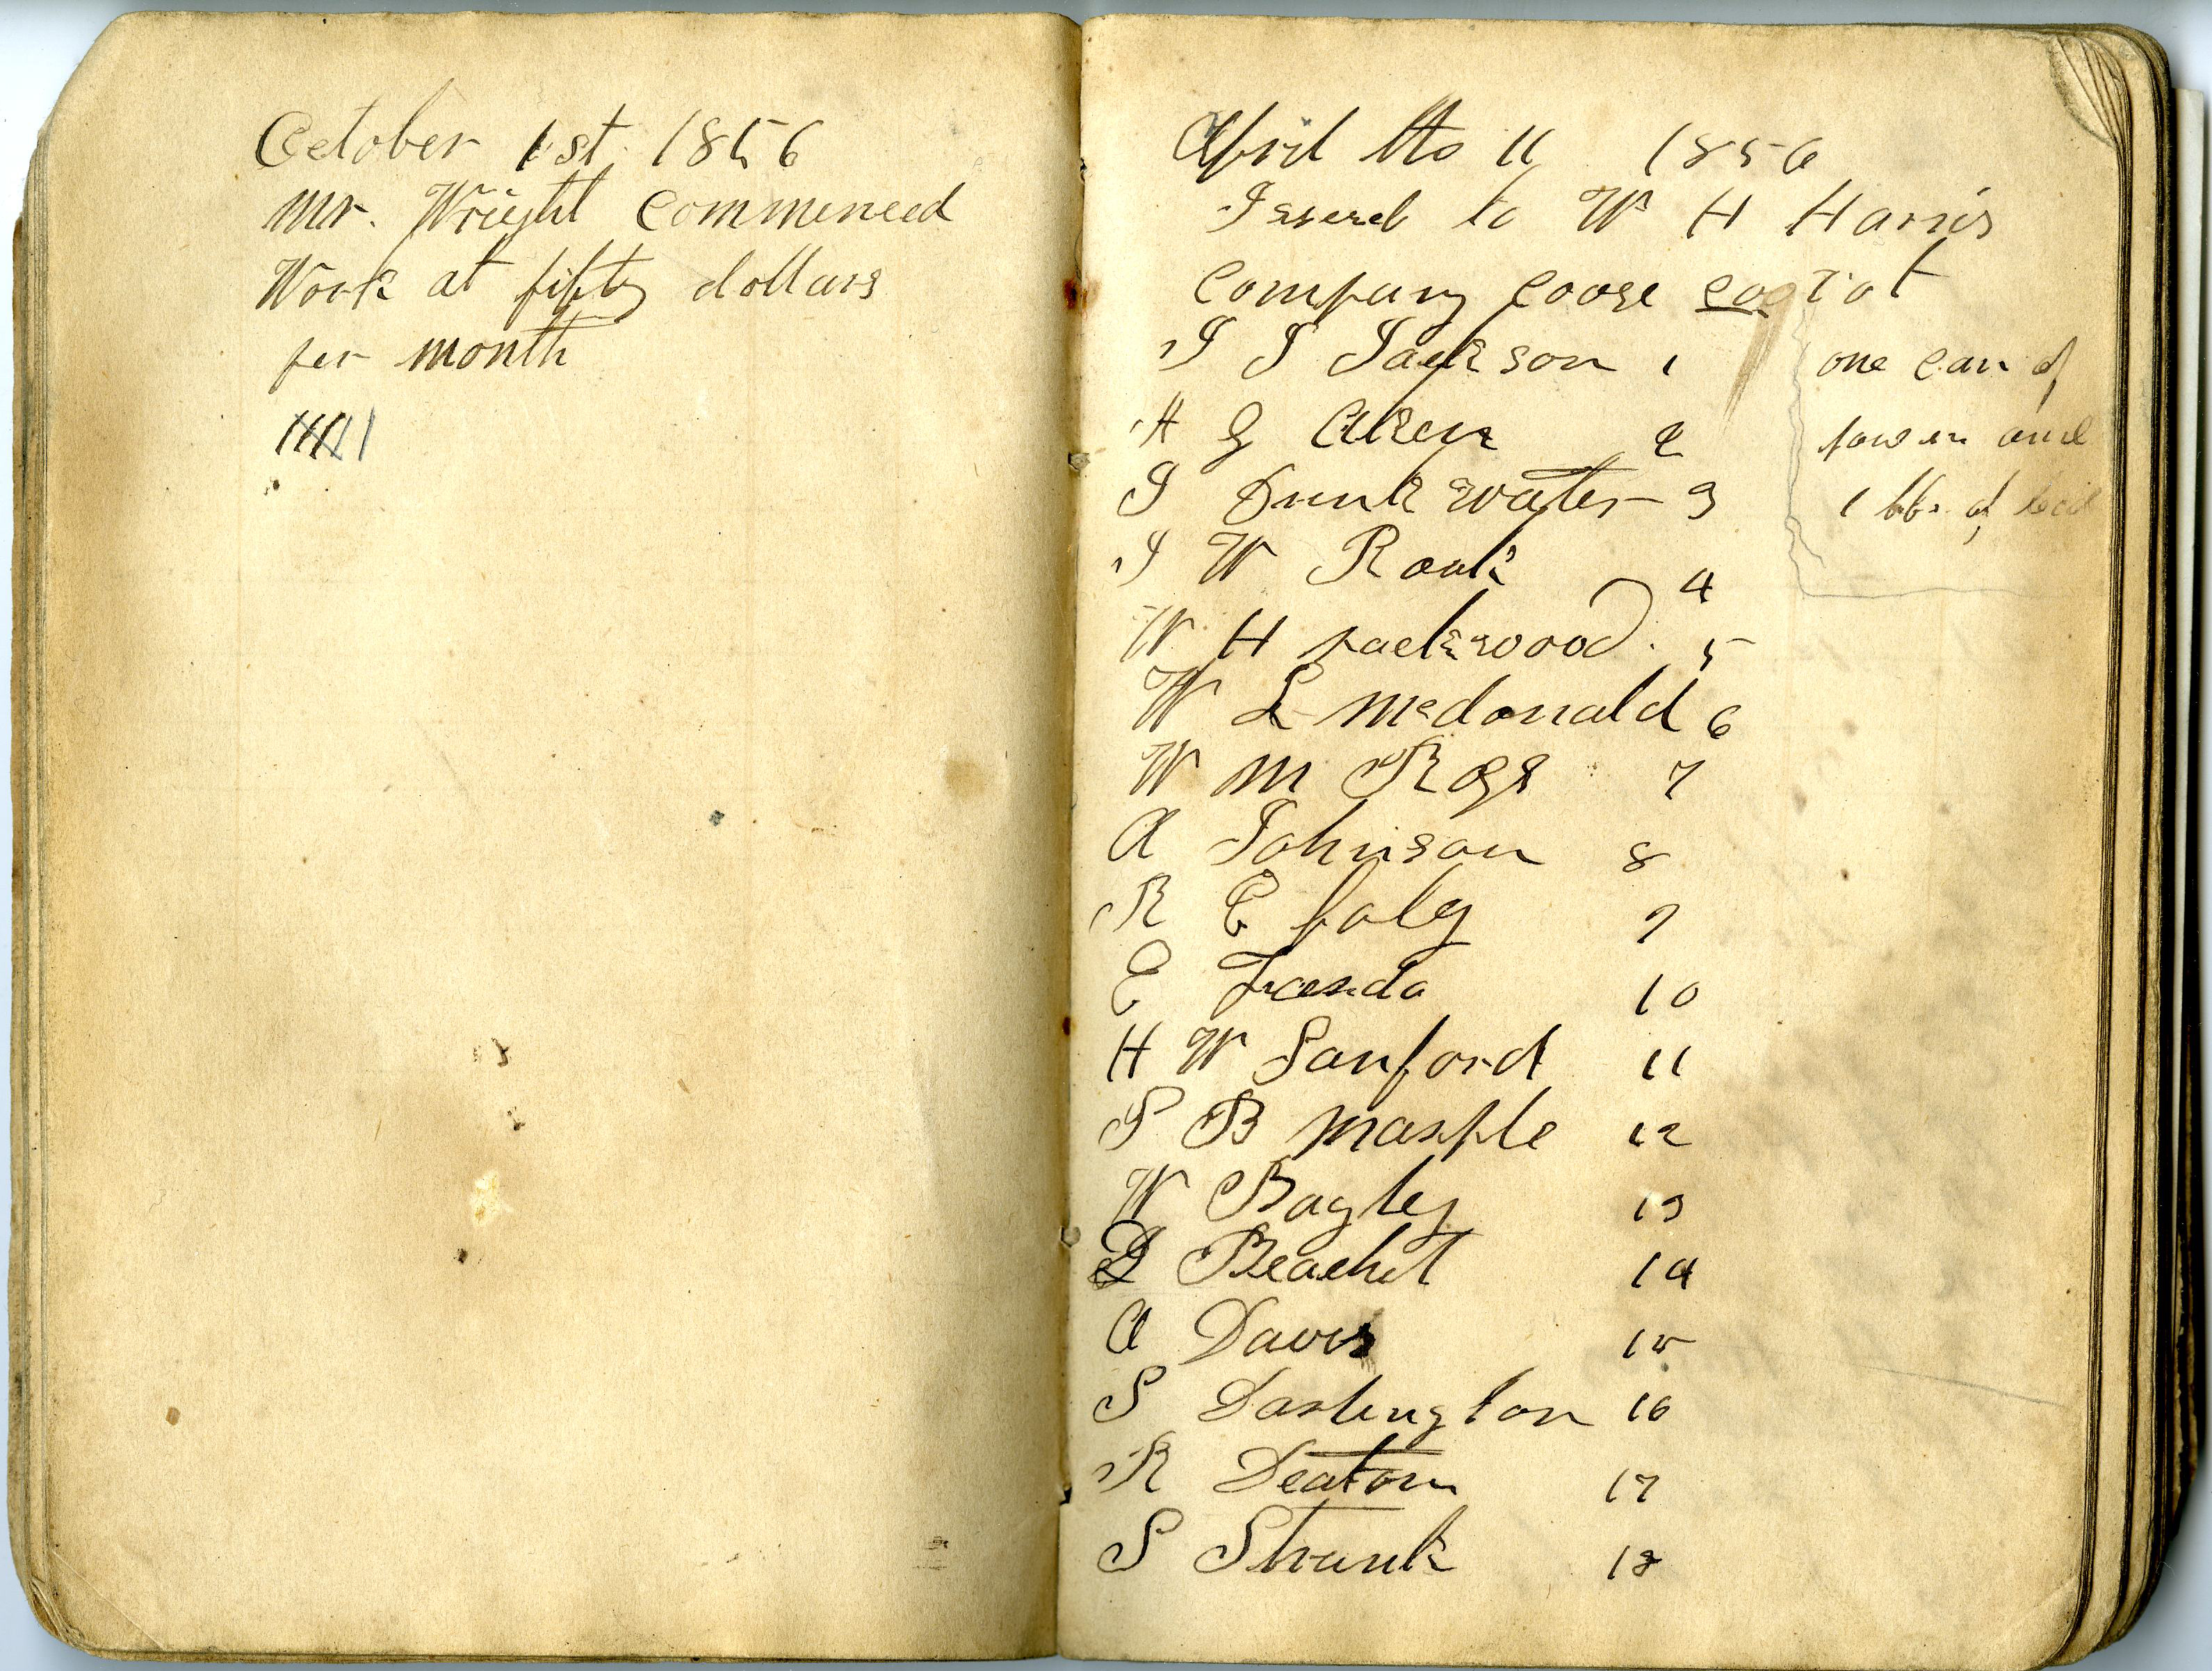 October 1st 1856
Mr. Wright Commenced
Work at fifty dollars
per month
April the 11 1856
Issued to W H Harris
Company Coose
J J Jackson 1
H G Aken 2
J Drinkwater 3
J W Rook 4
W H packwood 5
W L Mcdonald 6
W M 7
A Johnson 8
R E foley 9
E 10
H W Sanford 11
P B Marple 12
W Bagley 13
D Beachet 14
A Davis 15
S Darlington 16
R Deatom 17
S Strunk 18
one can of
power and
1 lbs. of lead